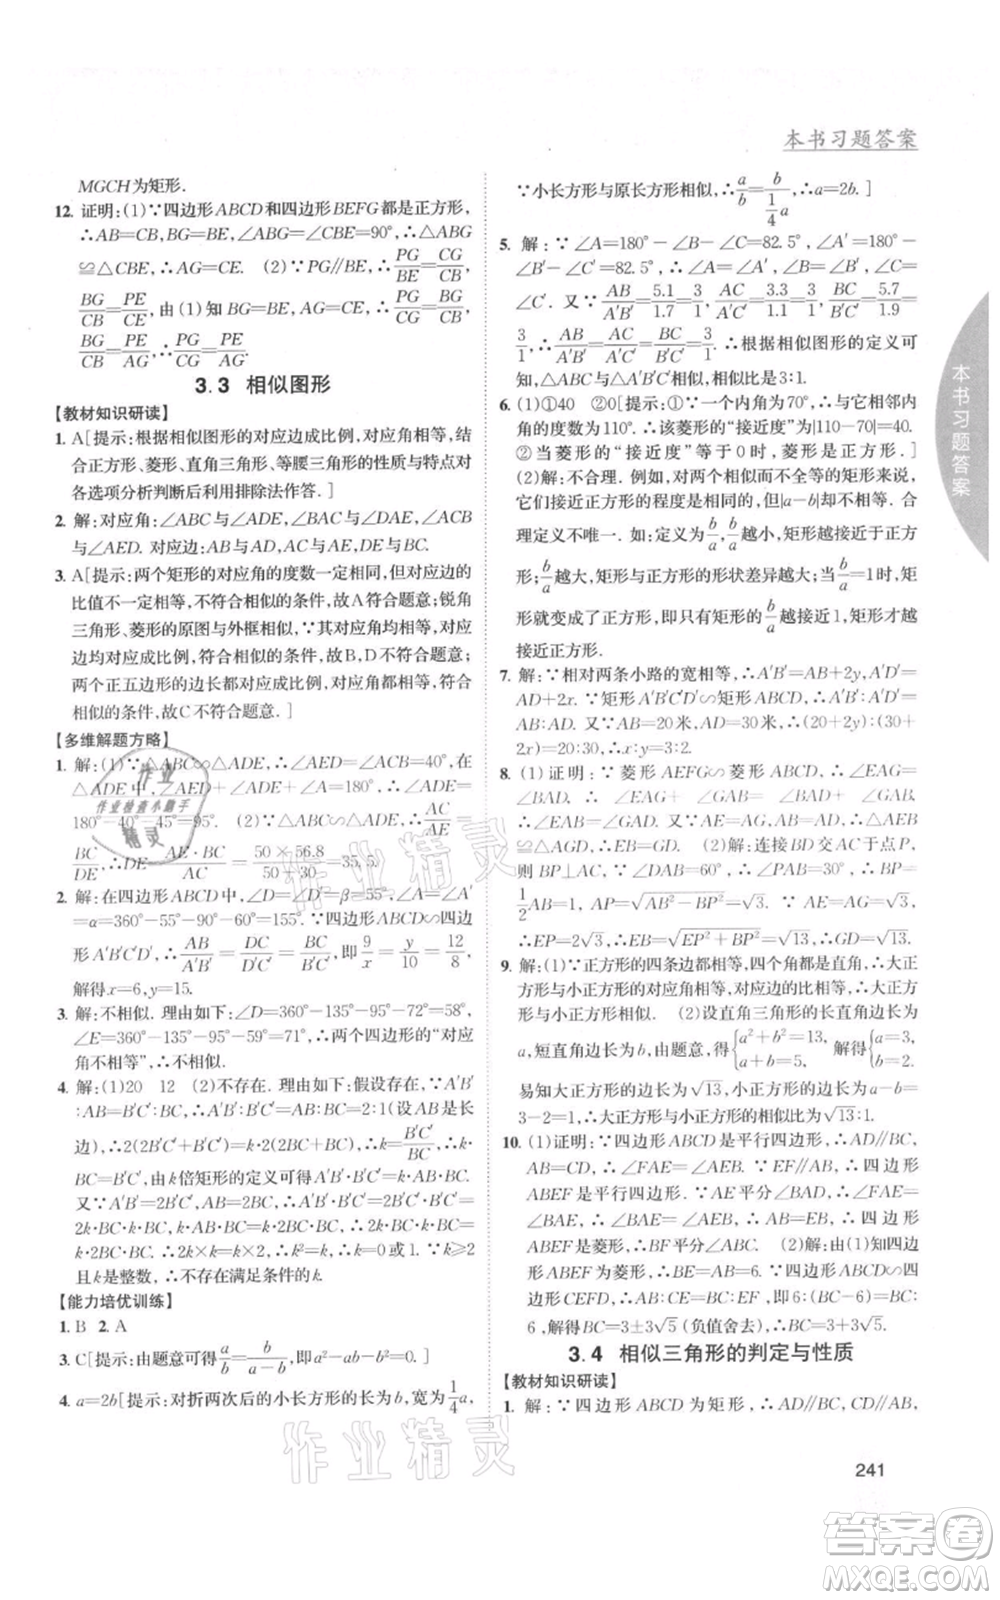 本书习题答案
MGCH为矩形.
12. 证明:(1)∵四边形ABCD和四边形BEFG都是正方形,
∴AB=CB,BG=BE,∠ABG=∠CBE=90°,∴△ABG
≌△CBE,∴AG=CE. (2)∵PG∥BE,∴PG/BE=CG/CB,
BG/CB=PE/CE,由(1)知BG=BE,AG=CE,∴PG/BG=CG/CB,
BG/CB=PE/AG,∴PG/BG=PE/AG.
3.3 相似图形
【教材知识研读】
1. A[提示:根据相似图形的对应边成比例,对应角相等,结
合正方形、菱形、直角三角形、等腰三角形的性质与特点对
各选项分析判断后利用排除法作答.]
2. 解:对应角:∠BAC与∠DAE,∠ABC与∠ADE,∠ACB
与∠AED. 对应边:AB与AD,AC与AE,BC与DE.
3. A[提示:两个矩形的对应角的度数一定相同,但对应边的
比值不一定相等,不符合相似的条件,故A符合题意;锐角
三角形、菱形的原图与外框相似,∵对应角均对应相等,对应
边均对应成比例,符合相似的条件,故B,D不符合题意;
两个正五边形的边长都对应成比例,而且对应角相等,符合
相似的条件,故C不符合题意.]
【多维解题方略】
1. 解:(1)∵△ABC∽△ADE,∴∠AED=∠ACB=40°,在
△ADE中,∠AED+∠ADE+∠A=180°,∴∠ADE=
180°-40°-45°=95°. (2)∵△ABC∽△ADE,∴AC/AE=
BC/DE,∴DE=AE·BC/AC=50×56.8/50+30=35.5(cm).
2. 解:在四边形ABCD中,∠D=∠D′=β=55°,∠A=∠A′
=α=360°-55°-90°-60°=155°. ∵四边形ABCD∽四边
形A′B′C′D′,∴AB/A′B′=DC/D′C′=BC/B′C′,即9/x=y/10=12/8,
解得x=6,y=15.
3. 解:不相似. 理由如下:∵∠D=360°-135°-95°-72°=58°,
∠E=360°-135°-95°-59°=71°,∴两个四边形的“对应
角不相等”,∴不相似.
4. 解:(1)20 12 (2)不存在. 理由如下:∵A′B′:B′C′
=AB:BC=2BC:BC,∴A′B′:B′C′=AB:BC=2:1(长边设
边),∴2(2B′C′+B′C′)=k·2(2BC+BC),∴k=B′C′/BC,∴k·
BC=B′C′. 由k倍矩形的定义可得A′B′·B′C′=k·AB·BC.
又∵A′B′=2B′C′,AB=2BC,∴2B′C′·B′C′=k·2BC·BC,∴
2k·BC·k·BC=k·2BC·BC,∴k²=k,∴k=0或1. ∵k≥2
且k是整数,∴不存在满足条件的k.
【能力培优训练】
1. B 2. A
3. C[提示:由题意可得a/b=b/a-b.]
4. a=2b[提示:对折两次后的小长方形的长为b,宽为1/4a,
∵小长方形与原长方形相似,∴a/b=b/(1/4a),∴a=2b.]
5. 解:∵∠A=180°-∠B-∠C=82.5°,∠A′=180°-
∠B′-∠C′=82.5°,∴∠A=∠A′,∠B=∠B′,∠C=
∠C′. 又∵AB/A′B′=5.1/1.7=3/1,AC/A′C′=3.3/1.1=3/1,BC/B′C′=5.7/1.9=
3/1,∴AB/A′B′=AC/A′C′=BC/B′C′,∴根据相似图形的定义可
知,△ABC∽△A′B′C′,且相似比是3:1.
6. (1)①40 ②0[提示:①∵菱形的一个内角为70°,∴相邻内
角的度数为110°,∴该菱形的“接近度”为|110-70|=40.
②当菱形的“接近度”等于0时,菱形是正方形.]
(2)解:不合理. 例如,对两个相似而不全等的矩形来说,
它们接近正方形的程度是相同的,但|a-b|却不相等. 合
理定义不唯一. 如:定义为b/a,b/a越小,矩形越接近于正方
形;b/a越大,矩形与正方形的形状差异越大;当b/a=1时,矩
形就变成了正方形,只有矩形的b/a越接近1,矩形才越
接近正方形.
7. 解:∵相对两条小路的宽相等,∴A′B′=AB+2y,A′D′=
AD+2x. ∵矩形A′B′C′D′∽矩形ABCD,∴A′B′:AB=
A′D′:AD. 又∵AB=20米,AD=30米,∴(20+2y):20=(30+
2x):30,∴x:y=3:2.
8. (1)证明:∵菱形AEFG∽菱形ABCD,∴∠EAG=
∠BAD,∴∠EAG+∠GAB=∠BAD+∠GAB,
∴∠EAB=∠GAD. ∵AE=AG,AB=AD,∴△AEB
≌△AGD,∴EB=GD. (2)解:连接BD交AC于点P,
则BP⊥AC,∵∠DAB=60°,∴∠PAB=30°,∴BP=
1/2AB=1,AP=√(AB²-BP²)=√3,AE=AG=√3,
∴EP=2√3,∴EB=√(EP²+BP²)=√13,∴GD=√13.
9. 解:(1)∵正方形的四条边都相等,四个角都是直角,∴大正
方形与小正方形相似. (2)设直角三角形的长直角边长为
a,短直角边长为b,由题意,得{a²+b²=13, a+b=5, 解得{a=3, b=2.
易知大正方形的边长为√13,小正方形的边长为
3-2=1,∴大正方形与小正方形的相似比为√13:1.
10. (1)证明:∵四边形ABCD是平行四边形,∴AD∥BC,
∴∠FAE=∠AEB. ∵EF∥AB,∴四边形
ABEF是平行四边形. ∵AE平分∠BAF,∴∠FAE=
∠BAE,∴∠BAE=∠AEB,∴AB=EB,∴四边形
ABEF是菱形. (2)解:由(1)知四边形
ABEF为菱形,∴BE=AB=6. ∵四边形ABCD∽四边
形CEFD,∴AB:CE=BC:EF,即6:(BC-6)=BC:
6,解得BC=3±3√5(负值舍去),∴BC=3+3√5.
3.4 相似三角形的判定与性质
【教材知识研读】
1. 解:∵四边形ABCD为矩形,∴AD∥BC,CD∥AB,
本书习题答案
241
作业精灵
作业检查小助手
答案圈
MXQE.COM